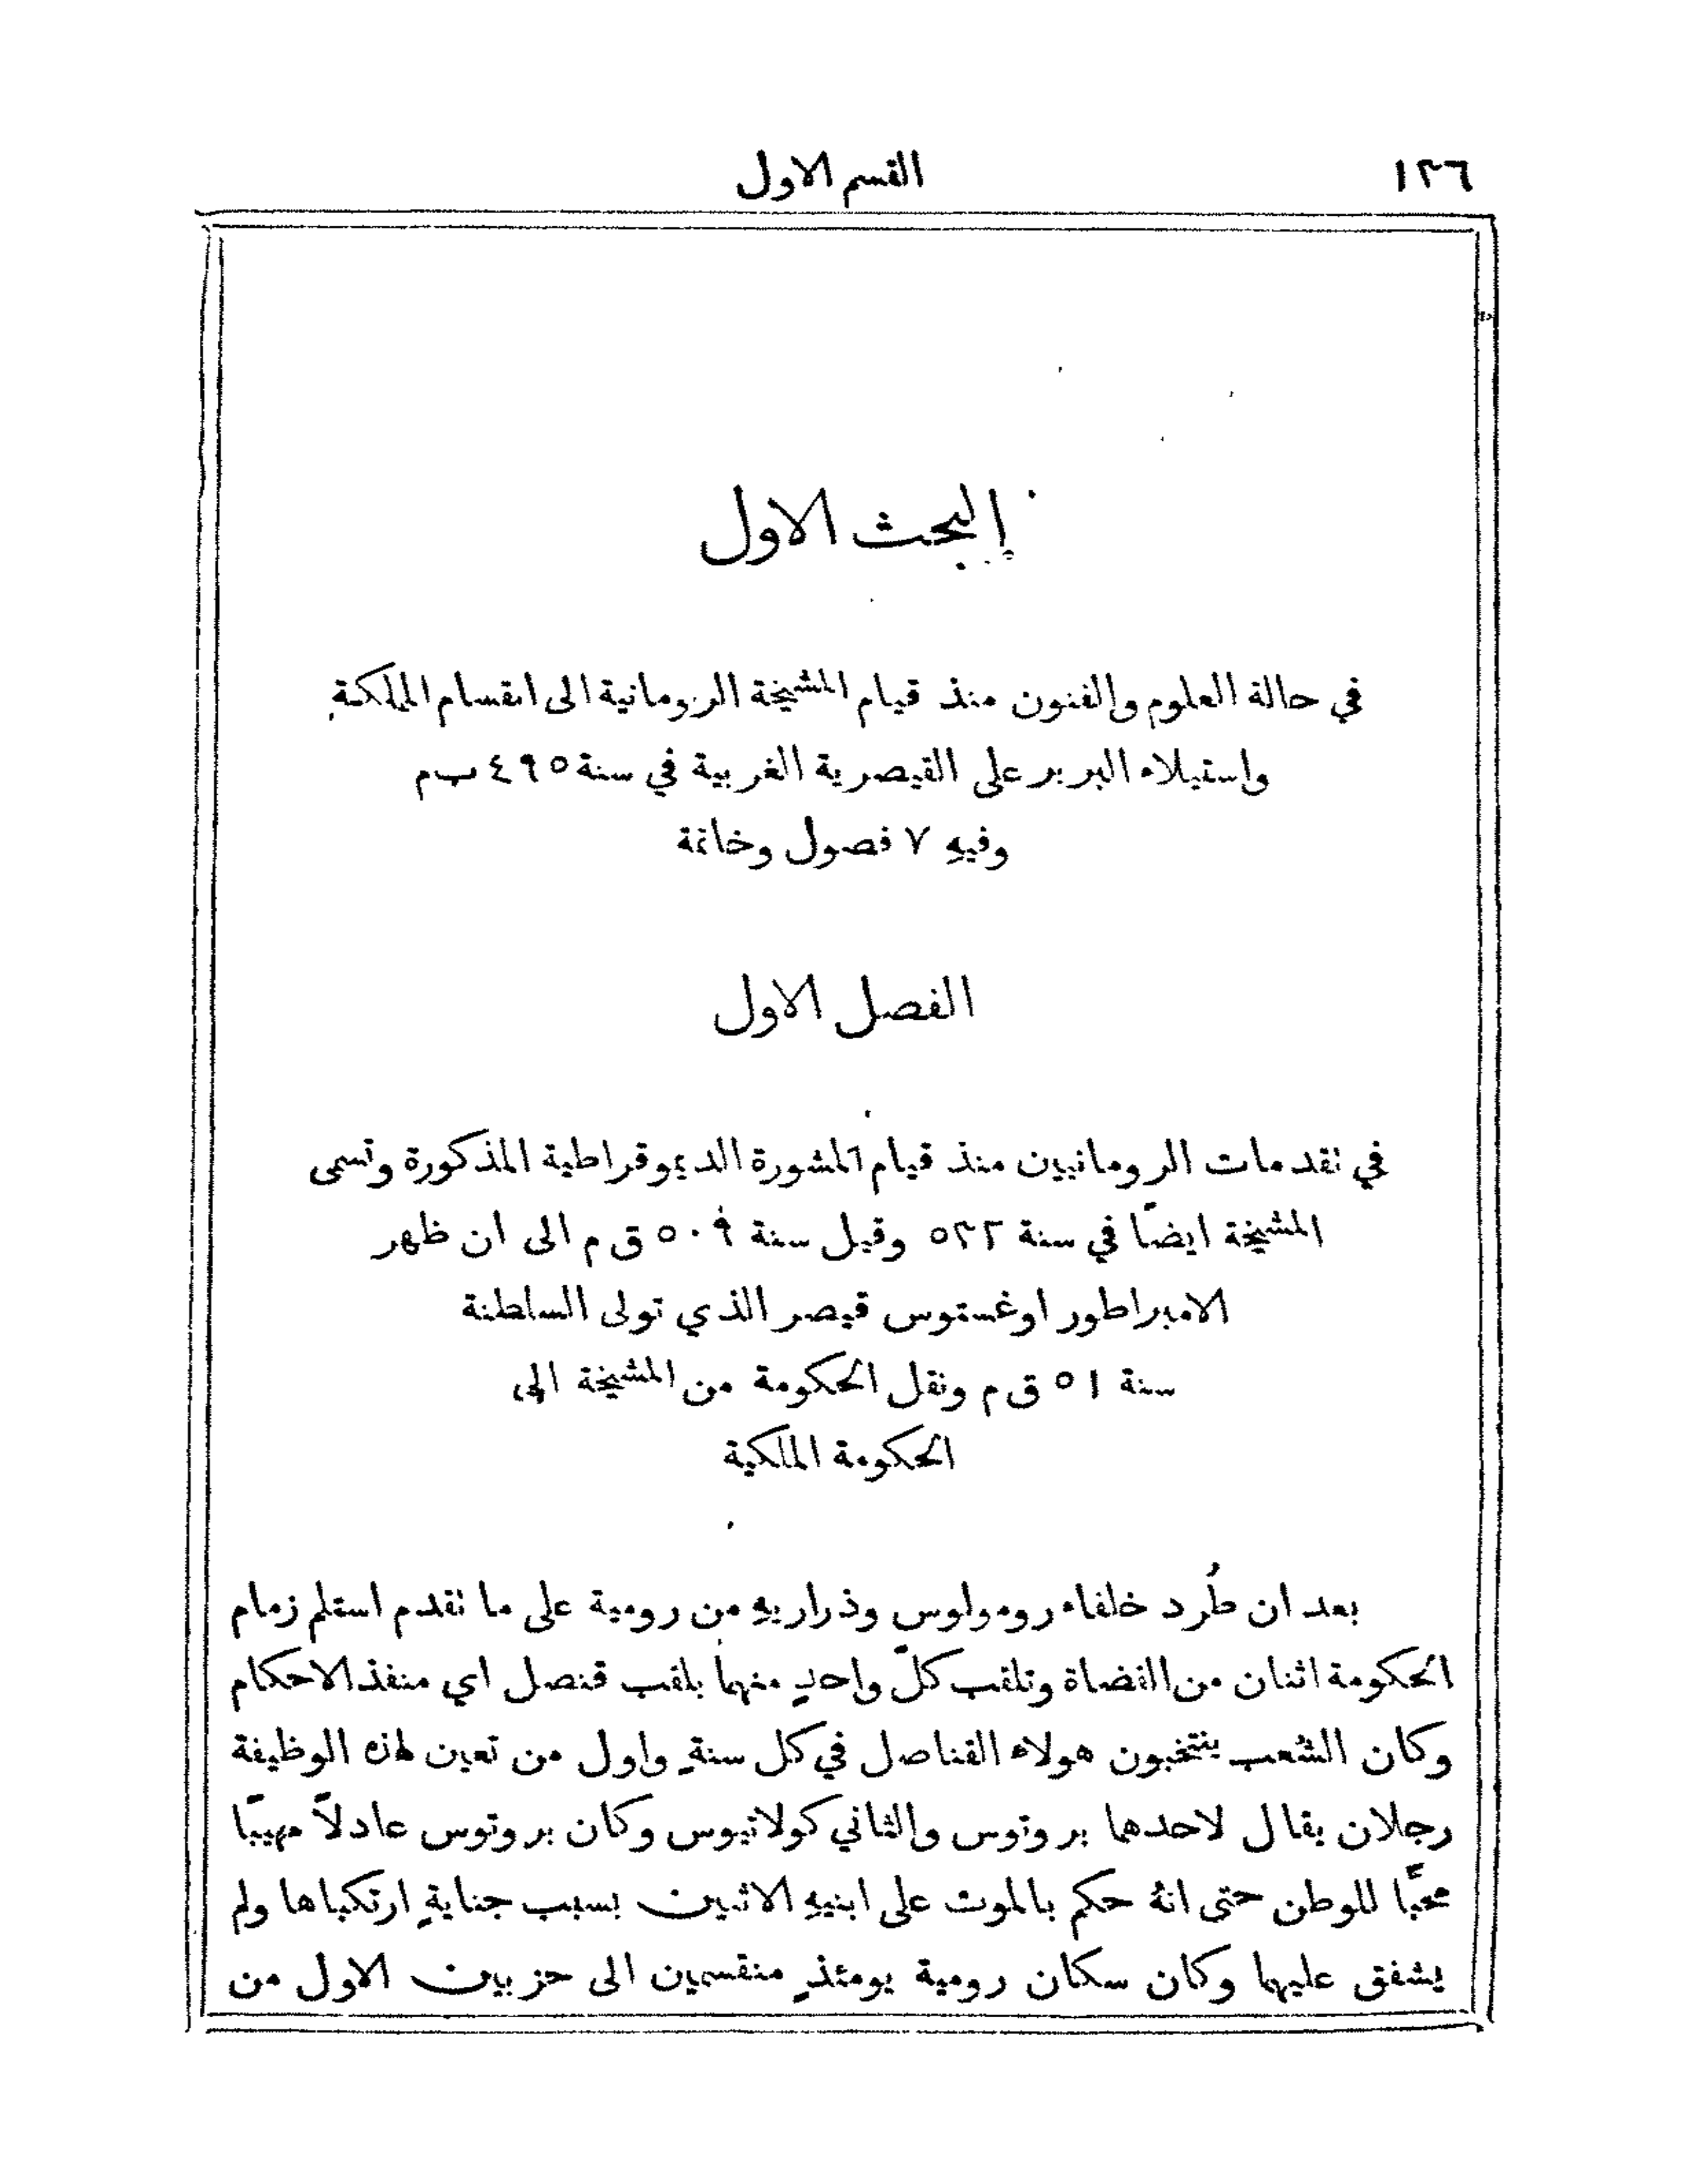 ١٣٦
القسم الاول
البحث الاول
في حالة العلوم والفنون منذ قيام المشيخة الرومانية الى انقسام المملكة
واستيلاء البربر على القيصرية الغربية في سنة ٤٩٥ ب م
وفيهِ ٧ فصول وخاتمة
الفصل الاول
في تقدمات الرومانيين منذ قيام المشورة الديموقراطية المذكورة وتسمى
المشيخة ايضًا في سنة ٥٣٢ وقيل سنة ٥٠٩ ق م الى ان ظهر
الامبراطور اوغستوس قيصر الذي تولى السلطنة
سنة ٥١ ق م ونقل الحكومة من المشيخة الى
الحكومة الملكية
بعد ان طُرد خلفاء رومولوس وذراريهِ من رومية على ما تقدم استلم زمام
الحكومة اثنان من القضاة وتلقب كلّ واحدٍ منهما بلقب قنصل اي منفذ الاحكام
وكان الشعب ينتخبون هولاء القناصل في كل سنةٍ واول من تعين لهذه الوظيفة
رجلان يقال لاحدهما بروتوس والثاني كولاتيوس وكان بروتوس عادلاً مهيبًا
محبًّا للوطن حتى انهُ حكم بالموت على ابنيهِ الاثنين بسبب جنايةٍ ارتكباها ولم
يشفق عليهما وكان سكان رومية يومئذٍ منقسمين الى حزبين الاول من